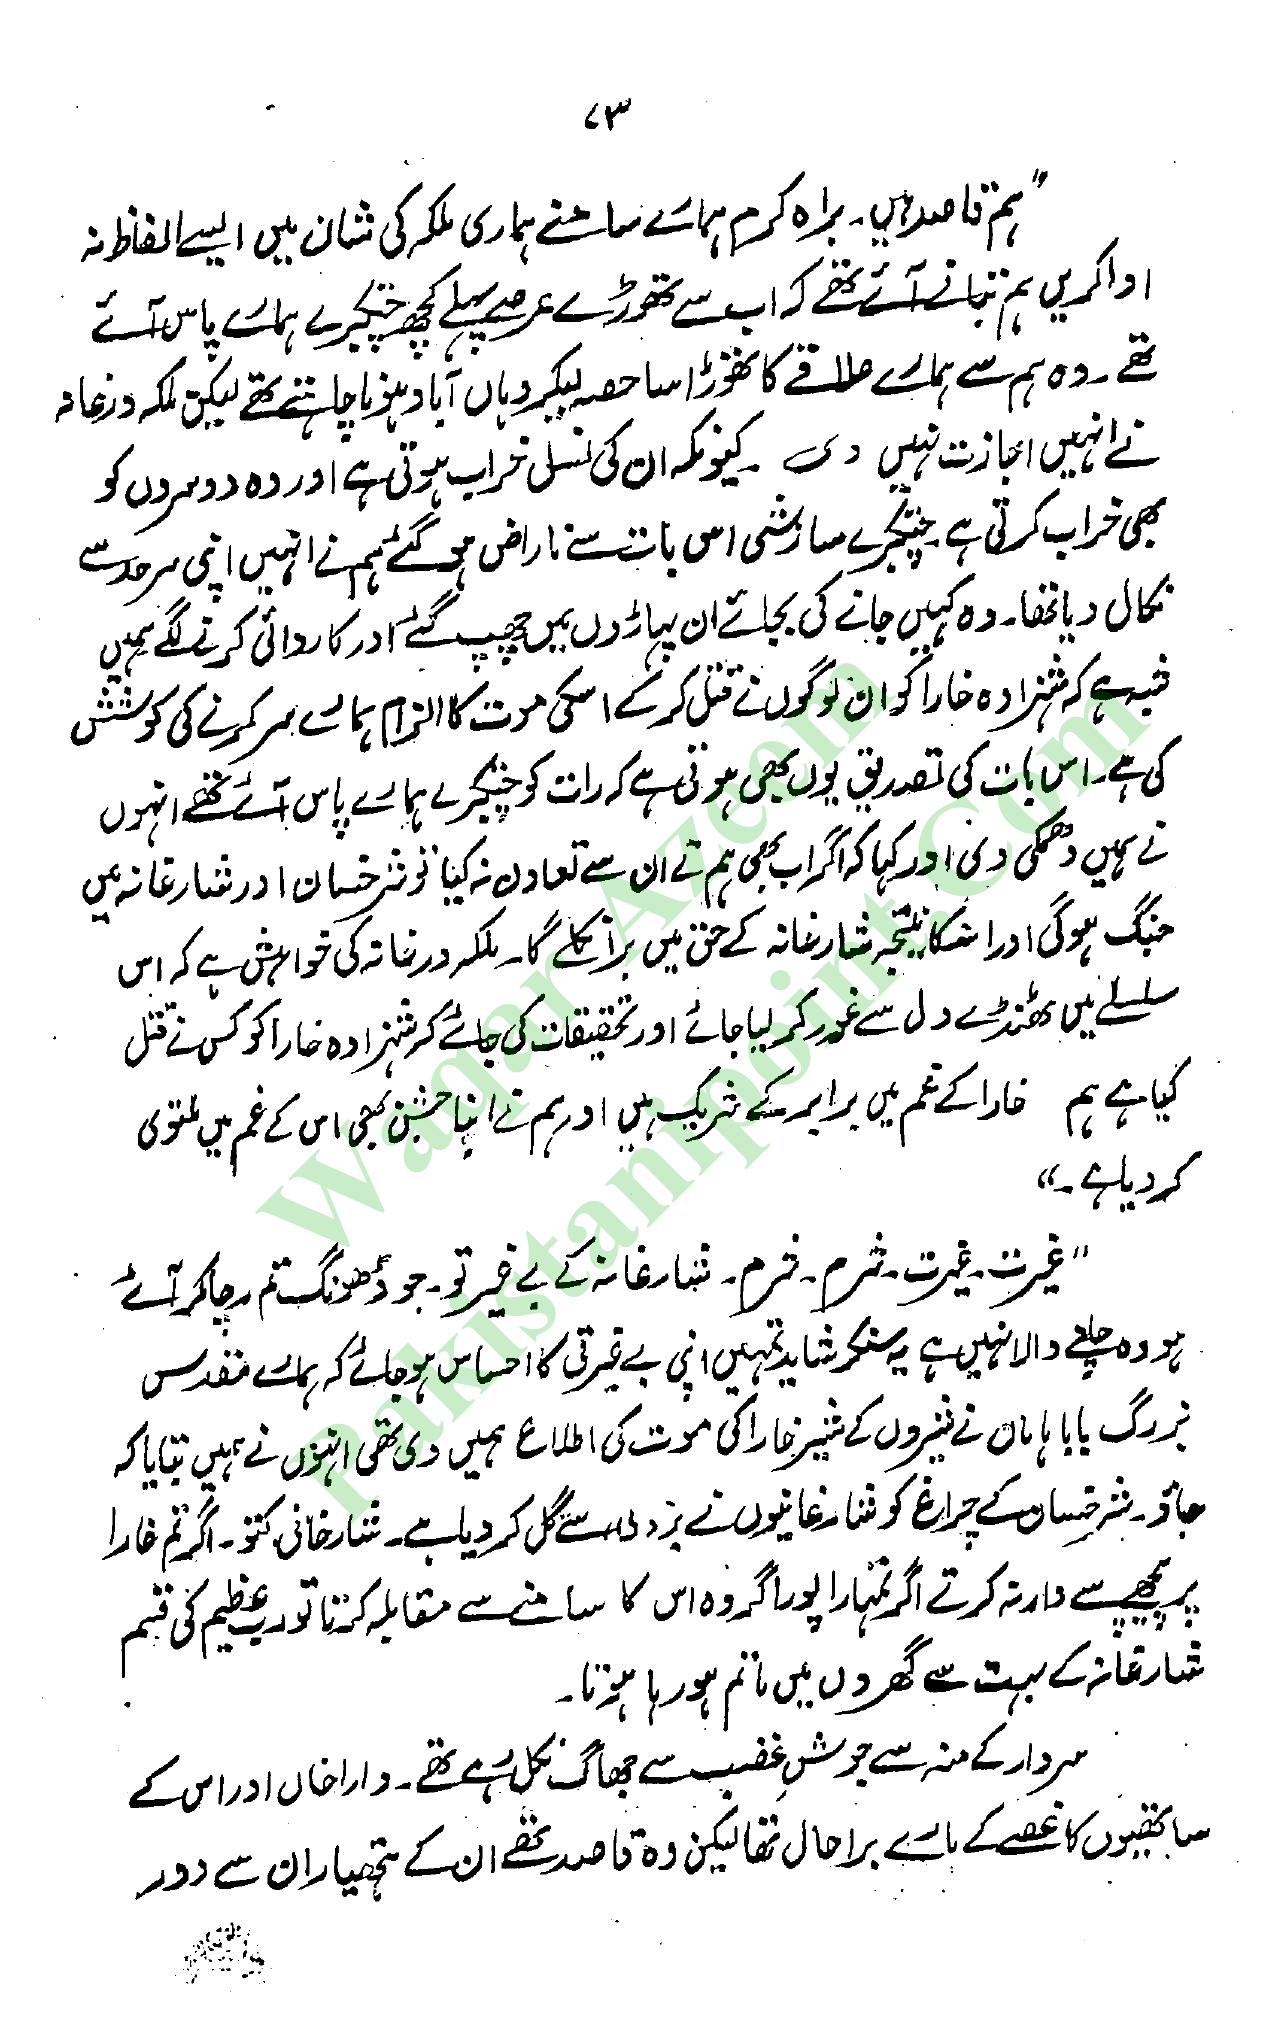 ۷۳
"ہم قاصد ہیں۔ براہ کرم ہمارے سامنے ہماری ملکہ کی شان میں ایسے الفاظ نہ
ادا کریں ہم بتانے آئے تھے کہ اب سے تھوڑے عرصے پہلے کچھ چنگیرے ہمارے پاس آئے
تھے۔ وہ ہم سے ہمارے علاقے کا تھوڑا سا حصہ لیکر وہاں آباد ہونا چاہتے تھے لیکن ملکہ درغانہ
نے انہیں اجازت نہیں دی ۔ کیونکہ ان کی نسل خراب ہوتی ہے اور وہ دوسروں کو
بھی خراب کرتی ہے۔ چنگیرے سازشی اس بات سے ناراض ہو گئے ہم نے انہیں اپنی سرحد سے
نکال دیا تھا۔ وہ کہیں جانے کی بجائے ان پہاڑوں میں چھپ گئے اور کاروائی کرنے لگے ہمیں
شبہ ہے کہ شہزادہ خارا کو ان لوگوں نے قتل کر کے اسکی موت کا الزام ہمارے سر کرنے کی کوشش
کی ہے۔ اس بات کی تصدیق یوں بھی ہوتی ہے کہ رات کو چنگیرے ہمارے پاس آئے تھے انہوں
نے ہمیں دھمکی دی اور کہا کہ اگر اب بھی ہم نے ان سے تعاون نہ کیا تو شرخسان اور شارغانہ میں
جنگ ہوگی اور اسکا نتیجہ شارغانہ کے حق میں برا نکلے گا۔ ملکہ درغانہ کی خواہش ہے کہ اس
سلسلے میں ٹھنڈے دل سے غور کر لیا جائے اور تحقیقات کی جائے کہ شہزادہ خارا کو کس نے قتل
کیا ہے ہم خارا کے غم میں برابر کے شریک ہیں اور ہم نے اپنا جشن بھی اس کے غم میں ملتوی
کر دیا ہے۔"
"غیرت۔ غیرت۔ شرم۔ شرم۔ شارغانہ کے بے غیرتو۔ جو ڈھونگ تم رچا کر آئے
ہو وہ چلنے والا نہیں ہے یہ سنکر شاید تمہیں اپنی بے غیرتی کا احساس ہو جائے کہ ہمارے مقدس
بزرگ بابا ہامان نے شیروں کے شیر خارا کی موت کی اطلاع ہمیں دی تھی انہوں نے ہمیں بتایا کہ
جاؤ۔ شرخسان کے چراغ کو شارغانیوں نے بزدلی سے گل کر دیا ہے۔ شارخانی کتو۔ اگر تم خارا
پر پیچھے سے وار نہ کرتے اگر تمہارا پورا گروہ اس کا سامنے سے مقابلہ کرتا تو رب عظیم کی قسم
شارغانہ کے بہت سے گھروں میں ماتم ہو رہا ہوتا۔
سردار کے منہ سے جوشِ غضب سے جھاگ نکل رہے تھے۔ دارا خاں اور اس کے
ساتھیوں کا غصے کے مارے برا حال تھا لیکن وہ قاصد تھے ان کے ہتھیار ان سے دور
Waqar Azeem
Pakistanipoint.Com